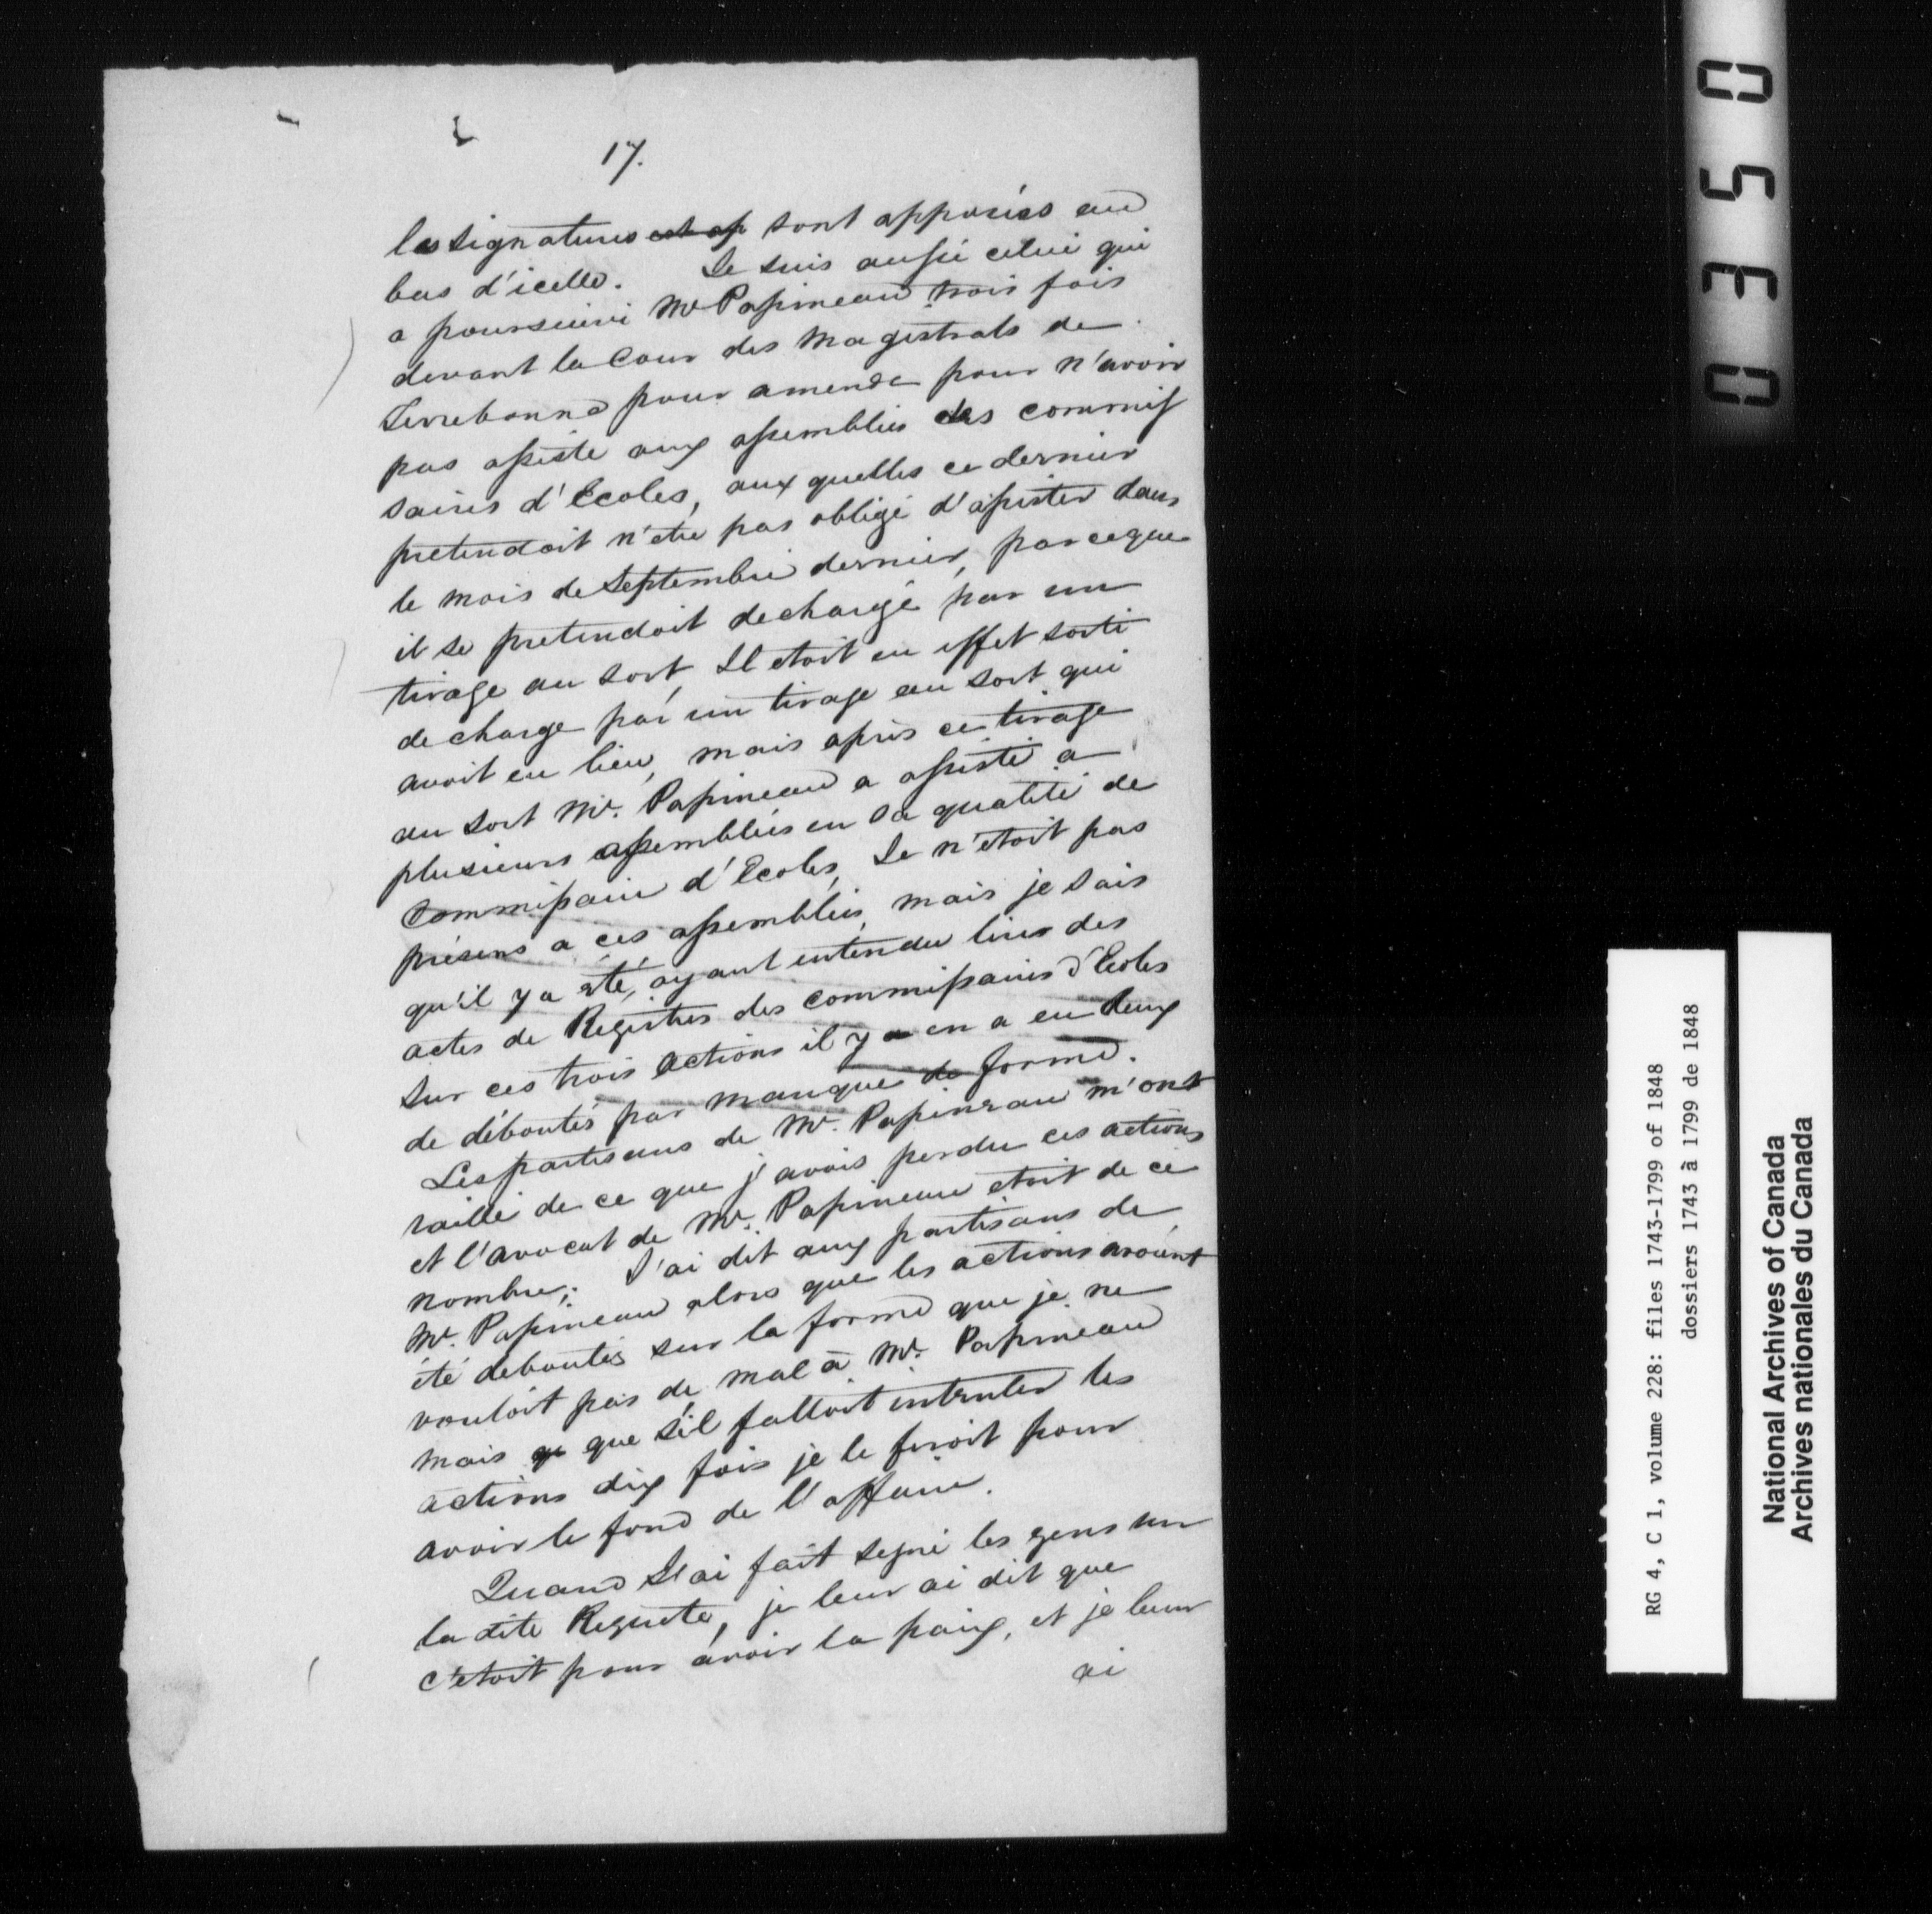 17.
les signatures est ap sont apposées au
bas d'icelle. Je suis aussi celui qui
a poursuivi Mr Papineau trois fois
devant la Cour des Magistrats de
Terrebonne pour amende pour n'avoir
pas assisté aux assemblées des commis
saires d'Ecoles, aux quelles ce dernier
pretendoit n'etre pas obligé d'assister dans
le mois de Septembre dernier, parceque
il se pretendoit dechargé par un
tirage au sort, Il etoit en effet sorti
de charge par un tirage au sort qui
avoit eu lieu, mais après ce tirage
au sort Mr. Papineau a assisté a
plusieurs assemblées en sa qualité de
Commissaire d'Ecoles, Je n'étoit pas
présens a ces assemblées, mais je sais
qu'il y a été, ayant entendu lires des
actes de Registres des commissaires d'Ecoles
Sur ces trois actions il y a en a eu deux
de déboutés par manque de forme.
Les partisans de Mr. Papineau m'ont
raillé de ce que j'avois perdu ces actions
et l'avocat de Mr. Papineau etoit de ce
nombre; J'ai dit aux partisans de
Mr. Papineau alors que les actions avoient
été deboutés sur la forme que je ne
vouloit pas de mal à Mr. Papineau
mais qu que s'il falloit intenter les
actions dix fois je le feroit pour
avoir le fond de l'affaire.
Quand J'ai fait signé les gens sur
la dite Requete, je leur ai dit que
c'etoit pour avoir la paix, et je leur
ai
0350
RG 4, C 1, volume 228: files 1743-1799 of 1848
dossiers 1743 à 1799 de 1848
National Archives of Canada
Archives nationales du Canada